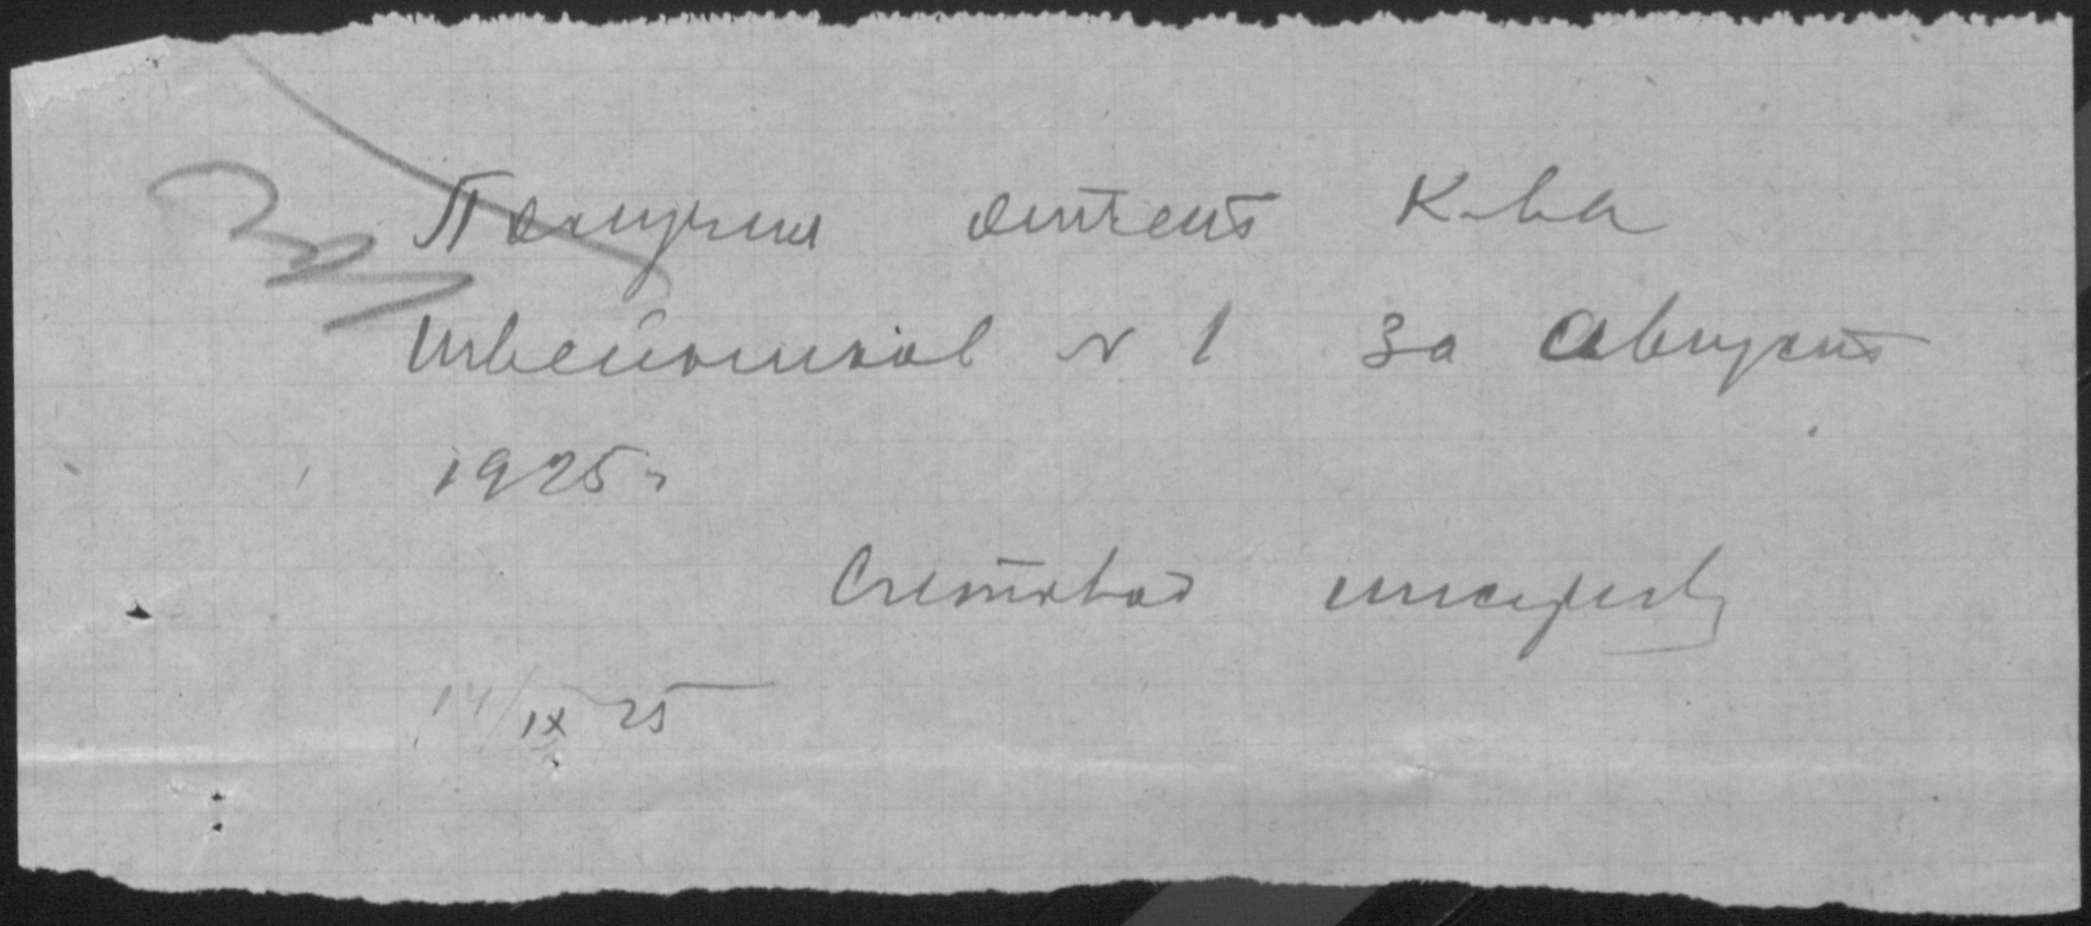 Получил отчет К-ва
Швейников № 1 за август
1925 г
Счетовод
14/IX 25